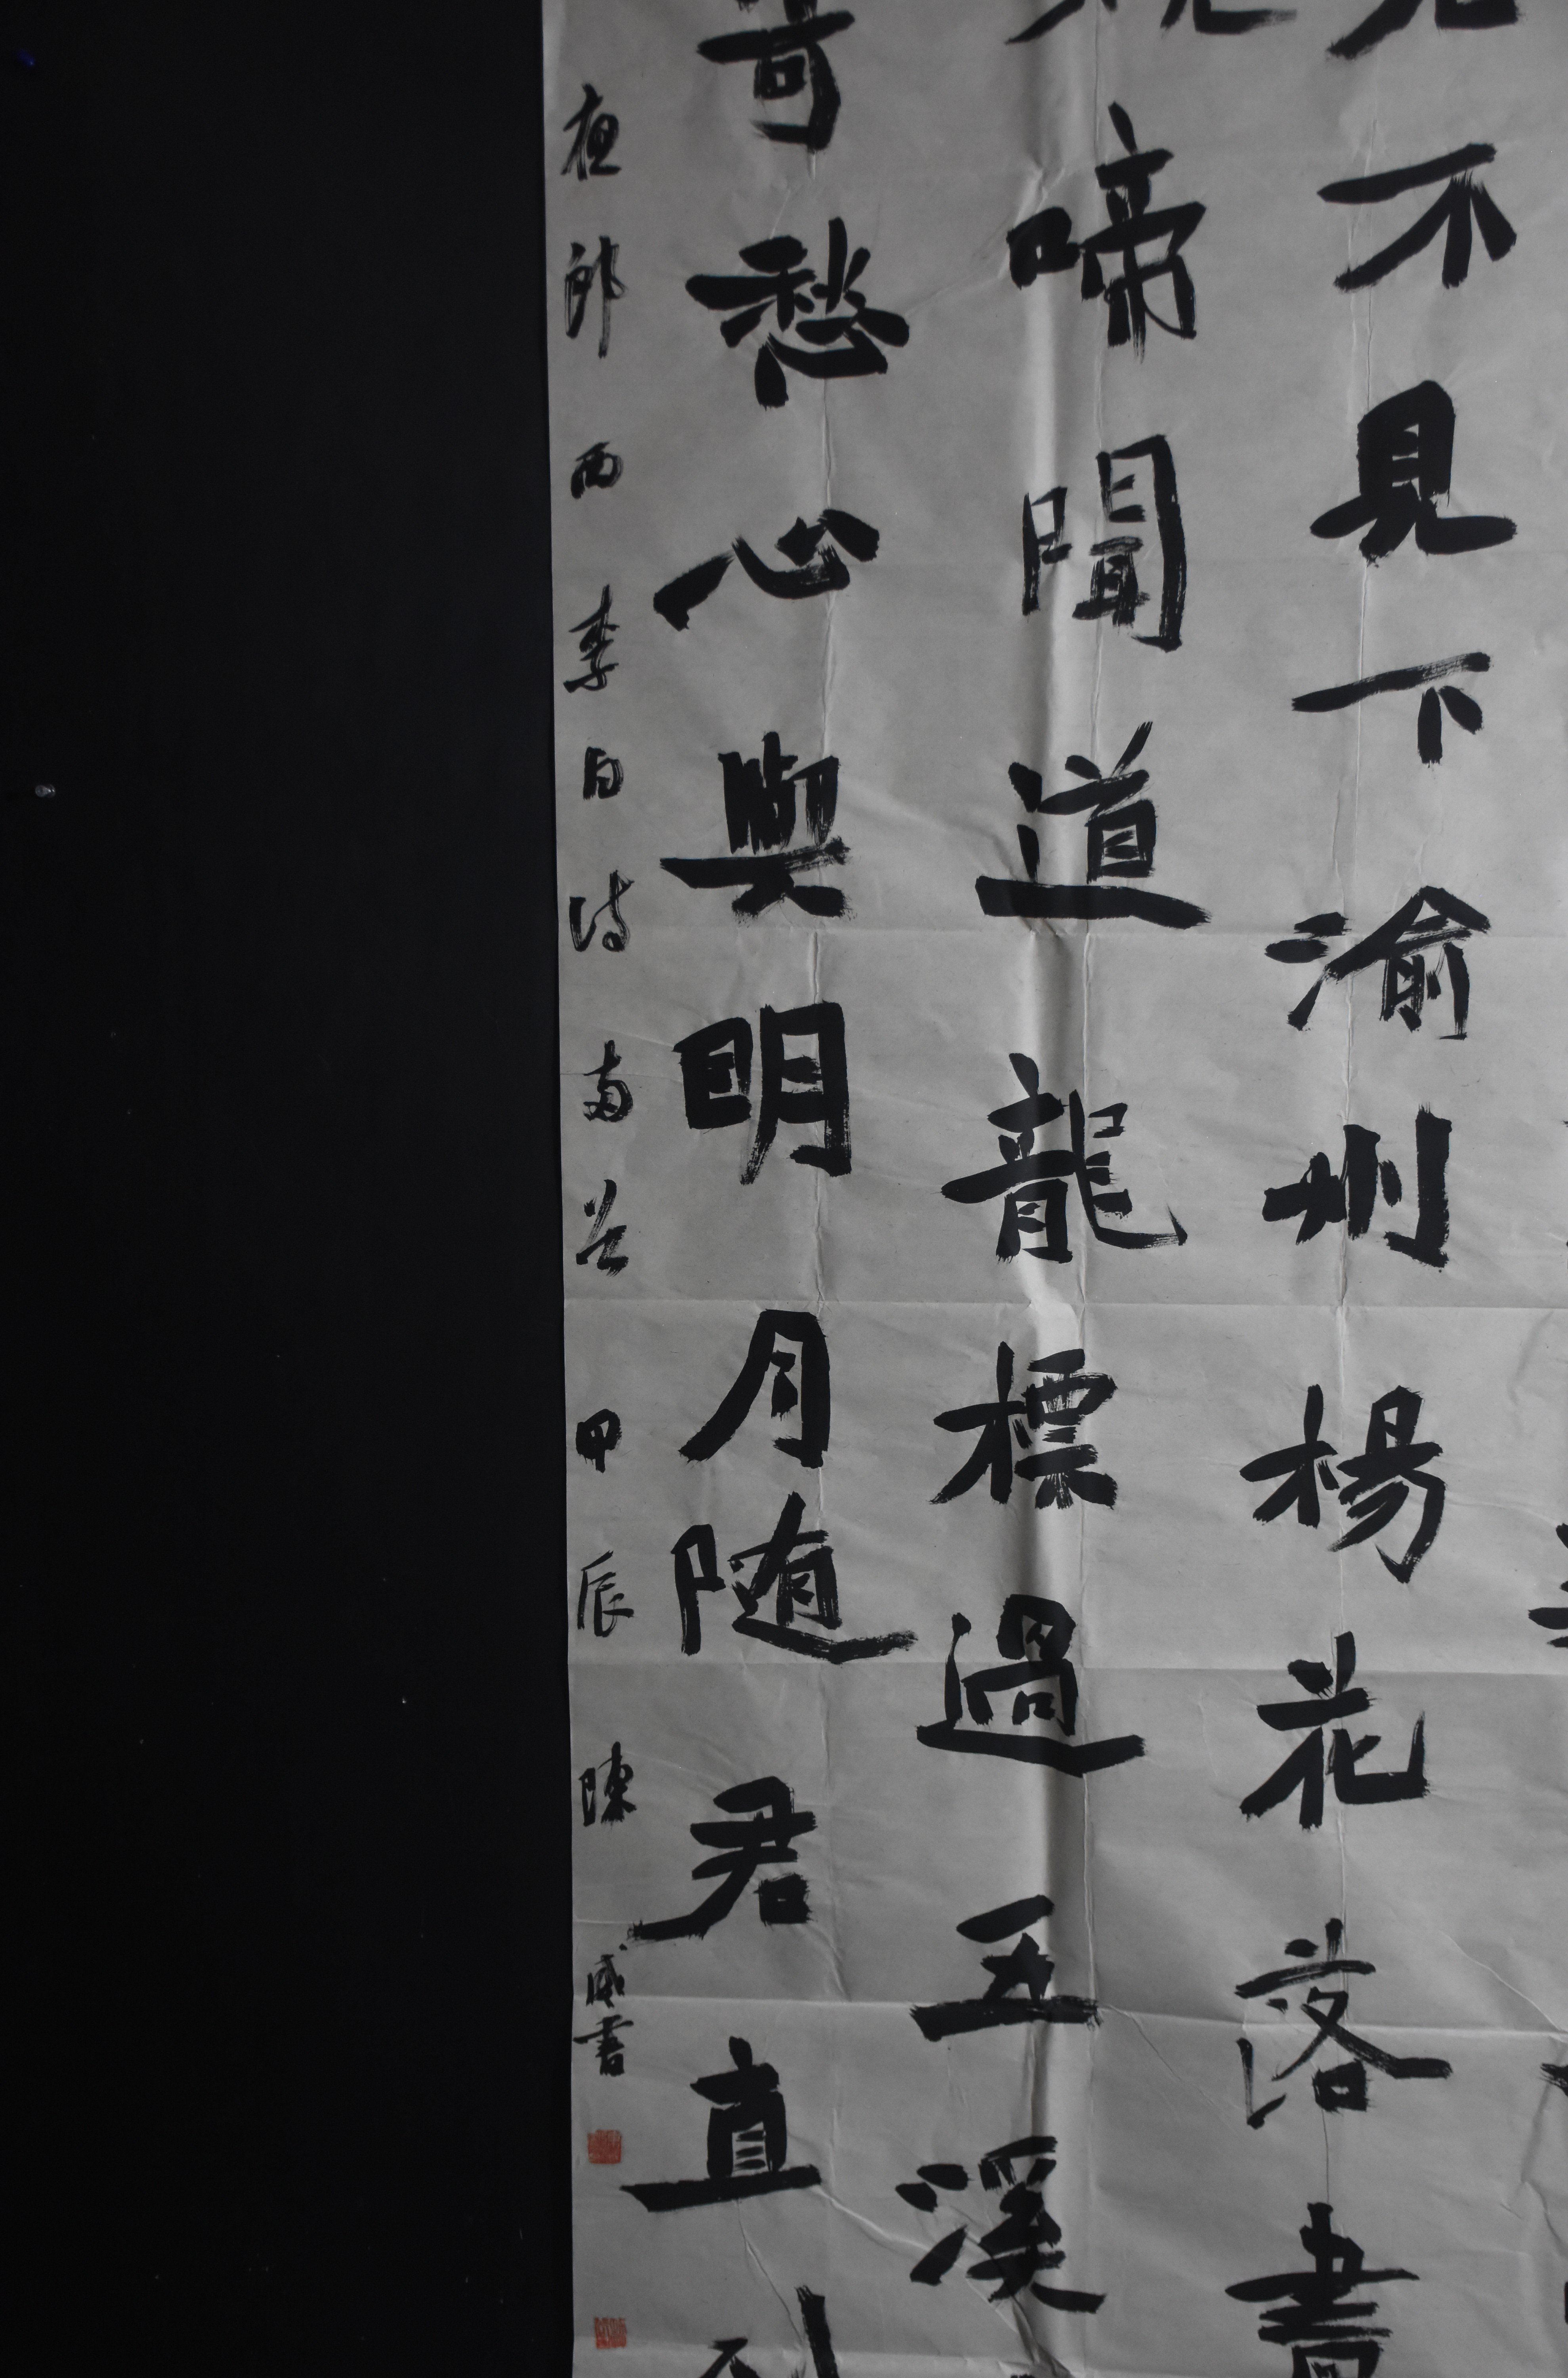 不見下渝州楊花落盡
啼聞道龍標過五溪
寄愁心與明月随君直
夜郎西李白詩南谷甲辰陳威書